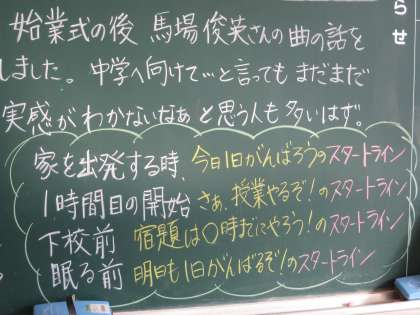 らせ
始業式の後 馬場俊英さんの曲の話を
しました。中学へ向けて…と言ってもまだまだ
実感がわかないなぁと思う人も多いはず。
家を出発する時、今日1日がんばろうのスタートライン
1時間目の開始 さぁ、授業やるぞ!のスタートライン
下校前 宿題は〇時までにやろう!のスタートライン
眠る前 明日も1日がんばるぞ!のスタートライン